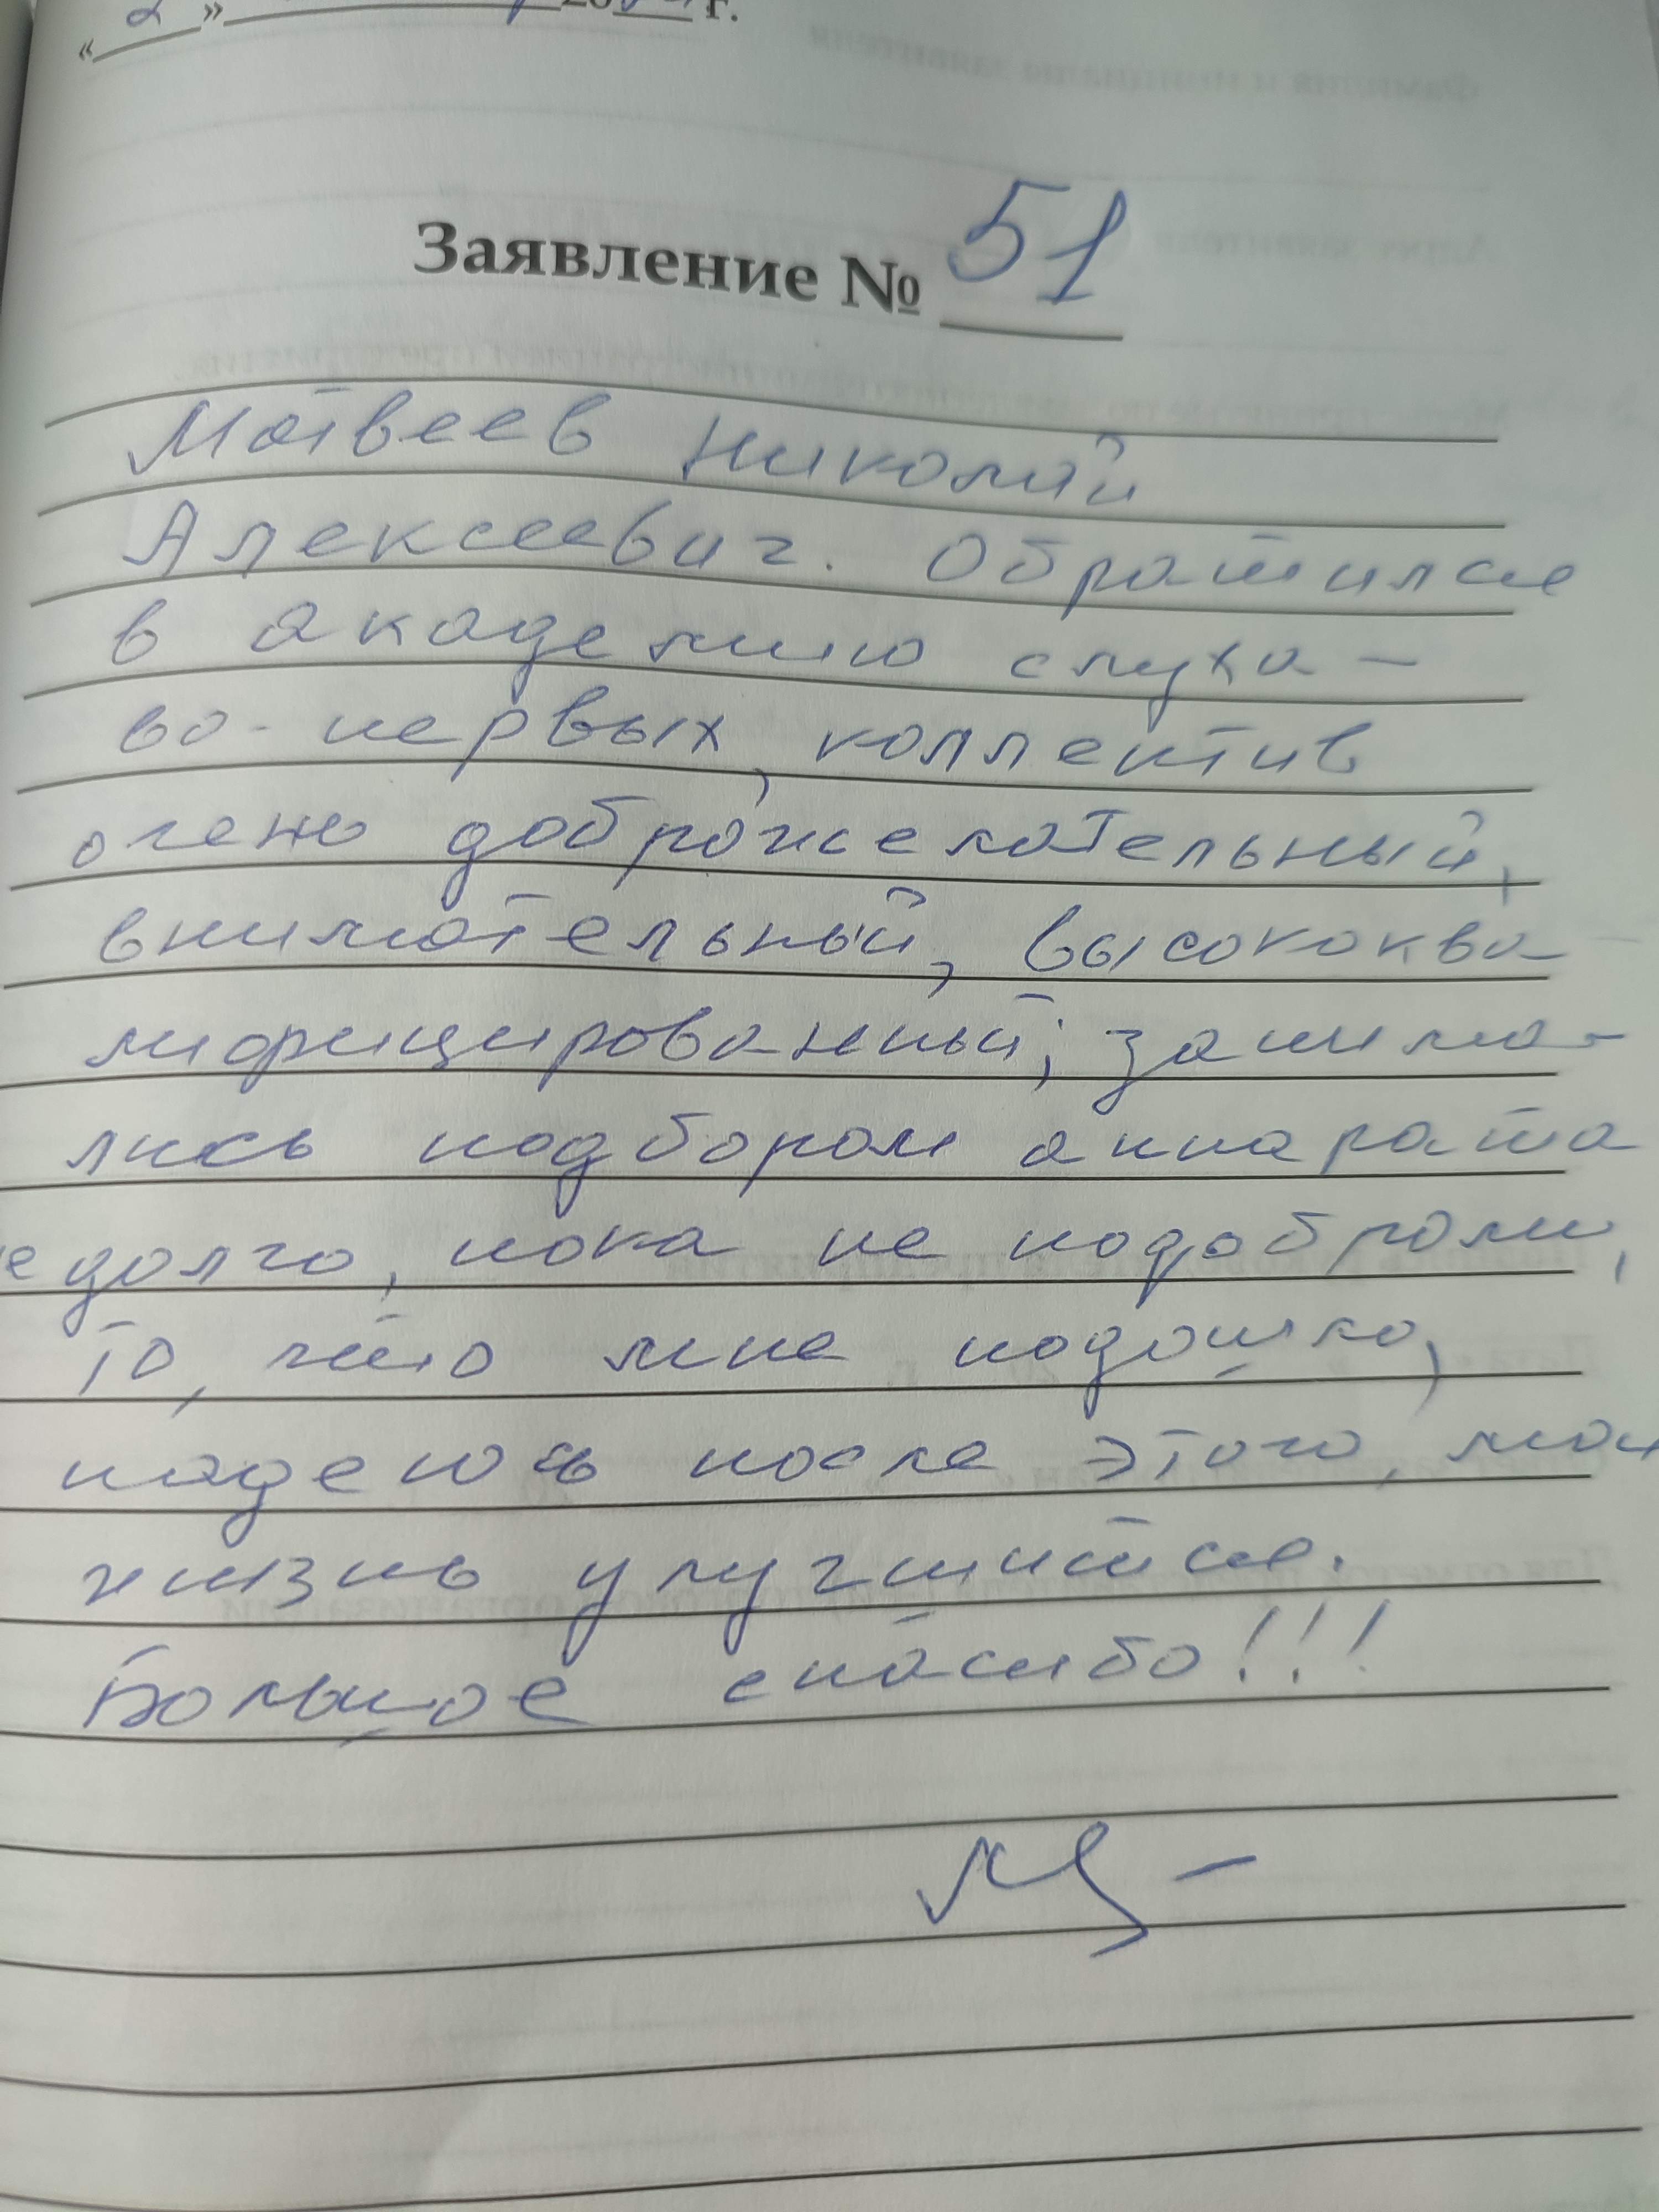 « 2 » 20 г.
Заявление № 51
Матвеев Николай
Алексеевич. Обратился
в академию слуха –
во-первых, коллектив
очень доброжелательный,
внимательный, высококва-
лифицированный; занима-
лись подбором аппарата
е долго, пока не подобрали,
то, что мне подошло,
надеюсь после этого, моя
жизнь улучшится.
Большое спасибо!!!